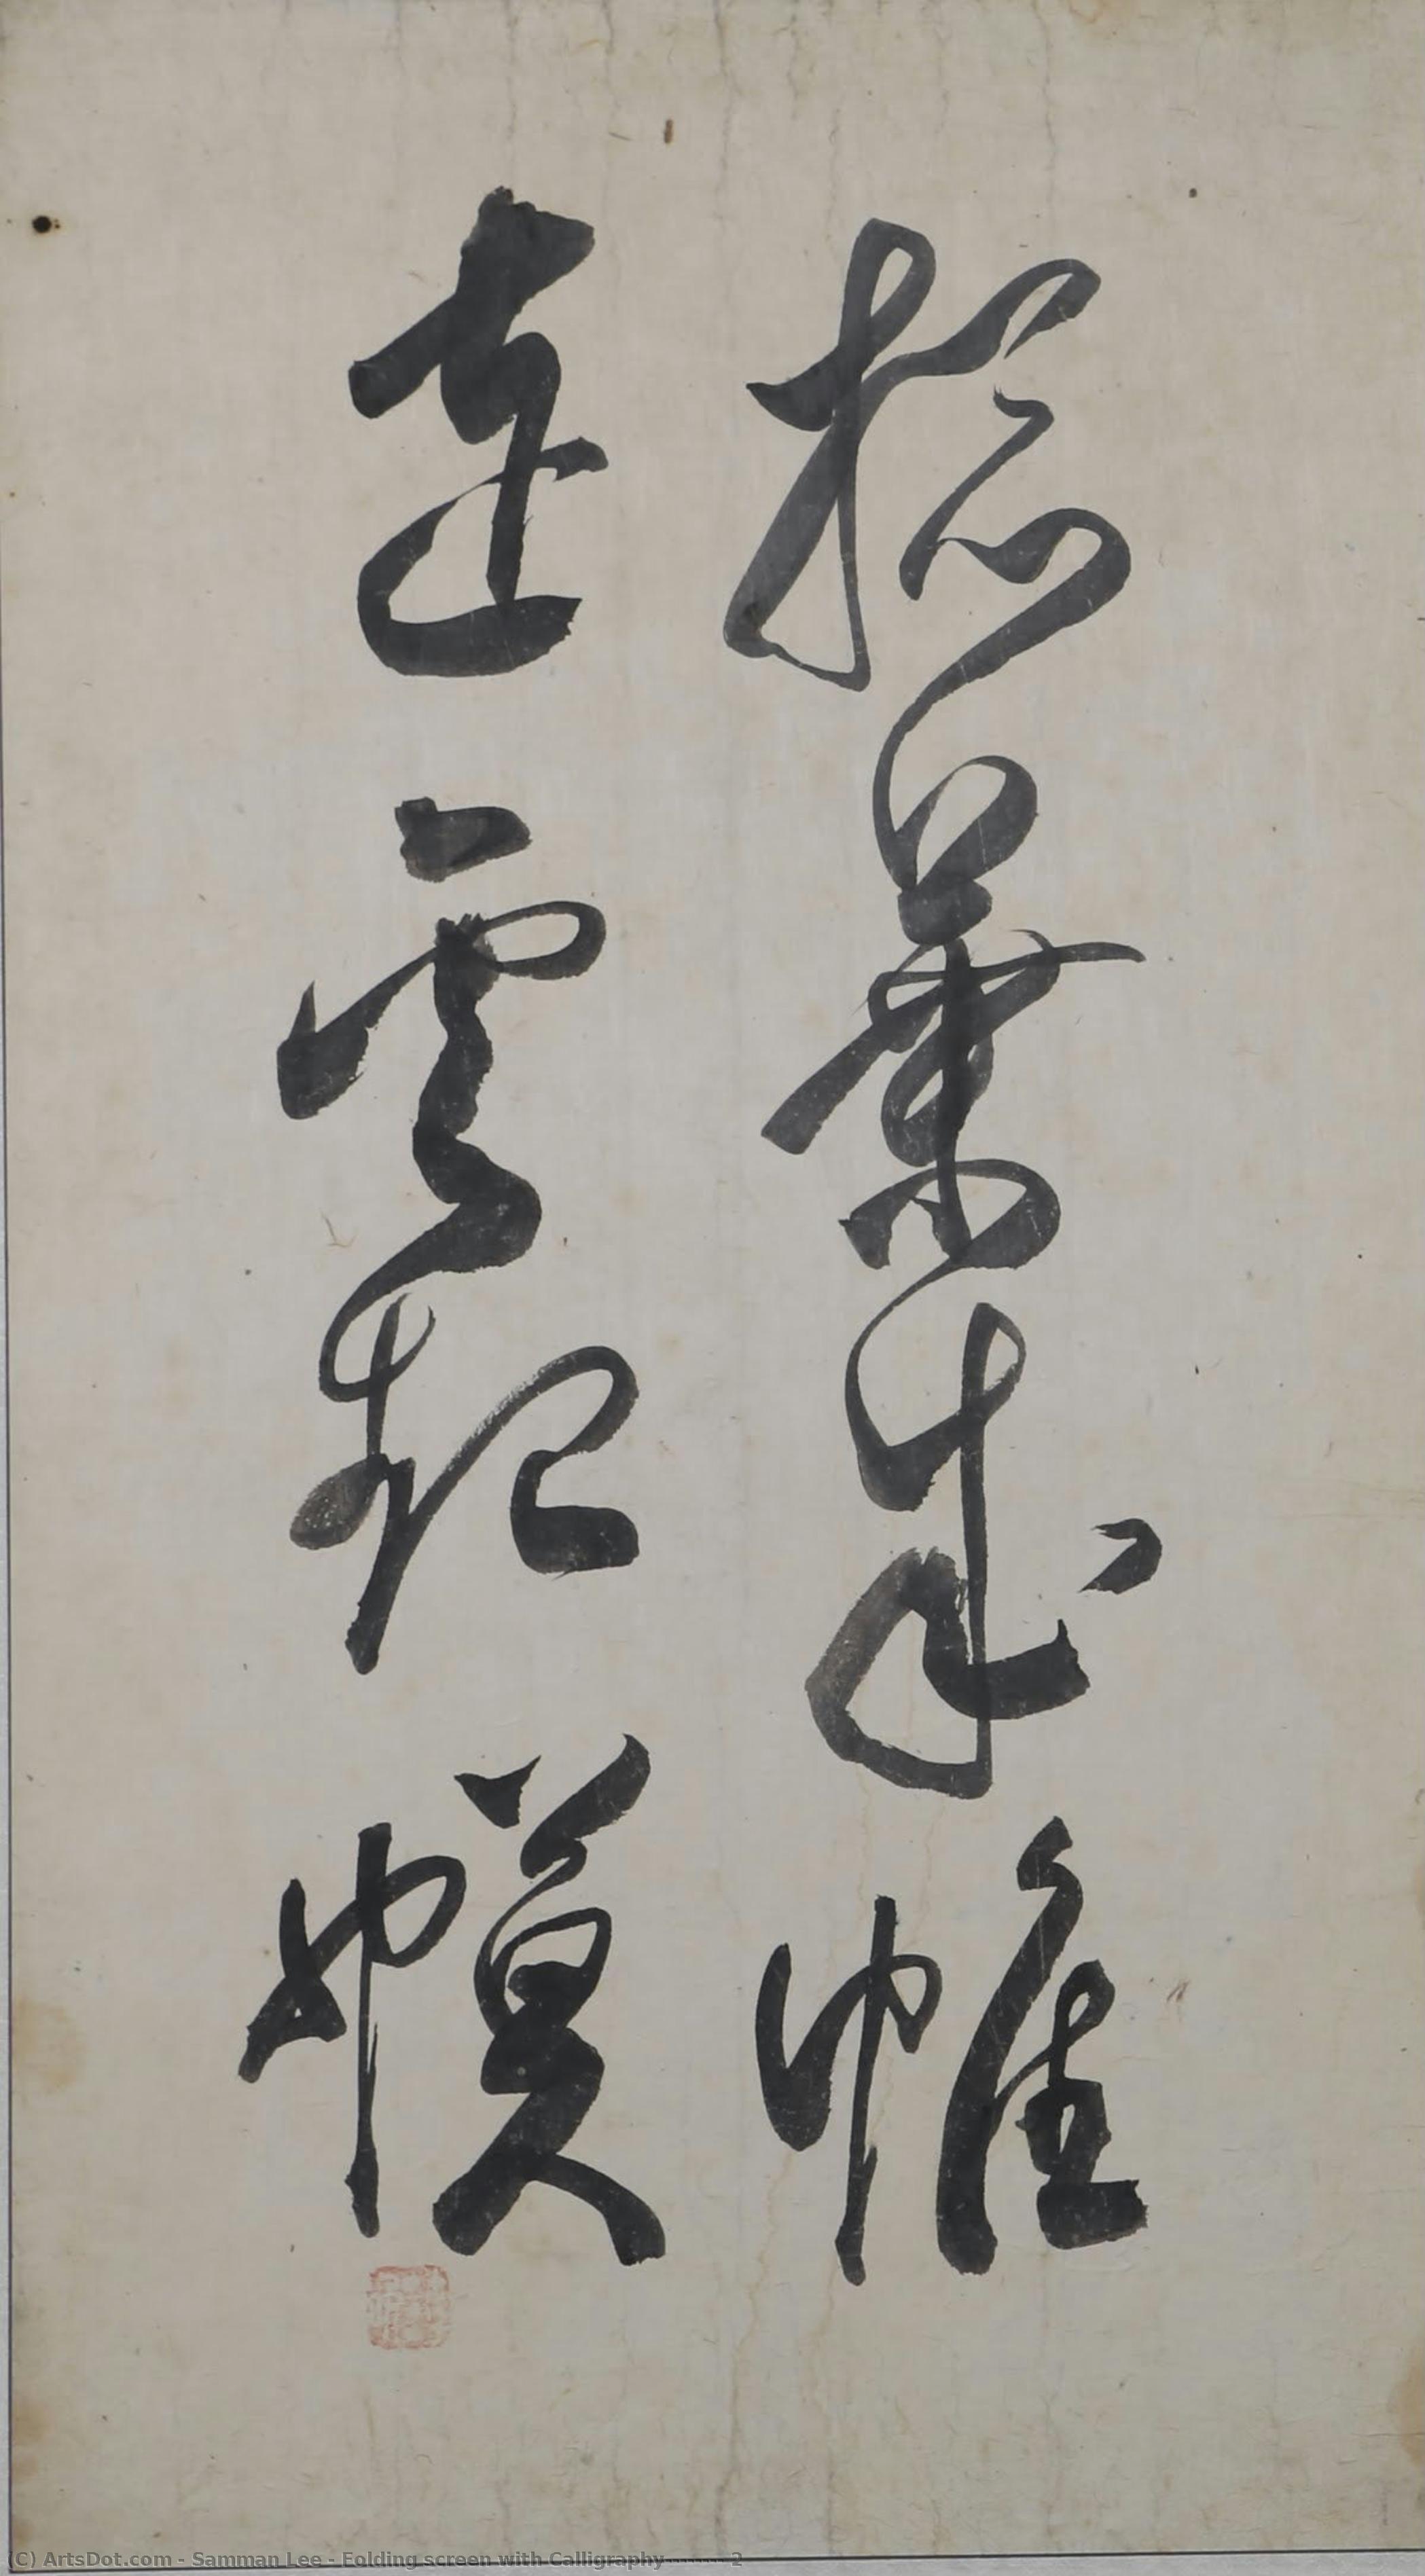 松葉成帷
遠雲起幙
(C) ArtsDot.com - Samman Lee - Folding screen with Calligraphy -------- 2